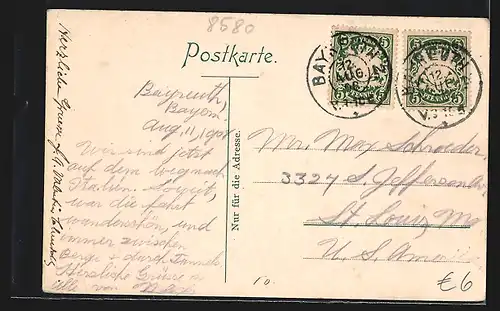 8580
Postkarte.
Bayreuth,
Bayern
Aug. 11, 1908
Wir sind jetzt
auf dem weg nach
Italien. Soweit,
war die fahrt
wunderschön, und
immer zwischen
Berge + durch Tunnels.
Herzliche Grüsse an
alle von
Herzliche Grüsse
Nur für die Adresse.
BAYREUTH
12. AUG.
5 PFENNIG 5
5 PFENNIG 5
Mr. Max Schroeder.
3324 S. Jefferson Av.
St. Louis Mo
U. S. America
10.
€6